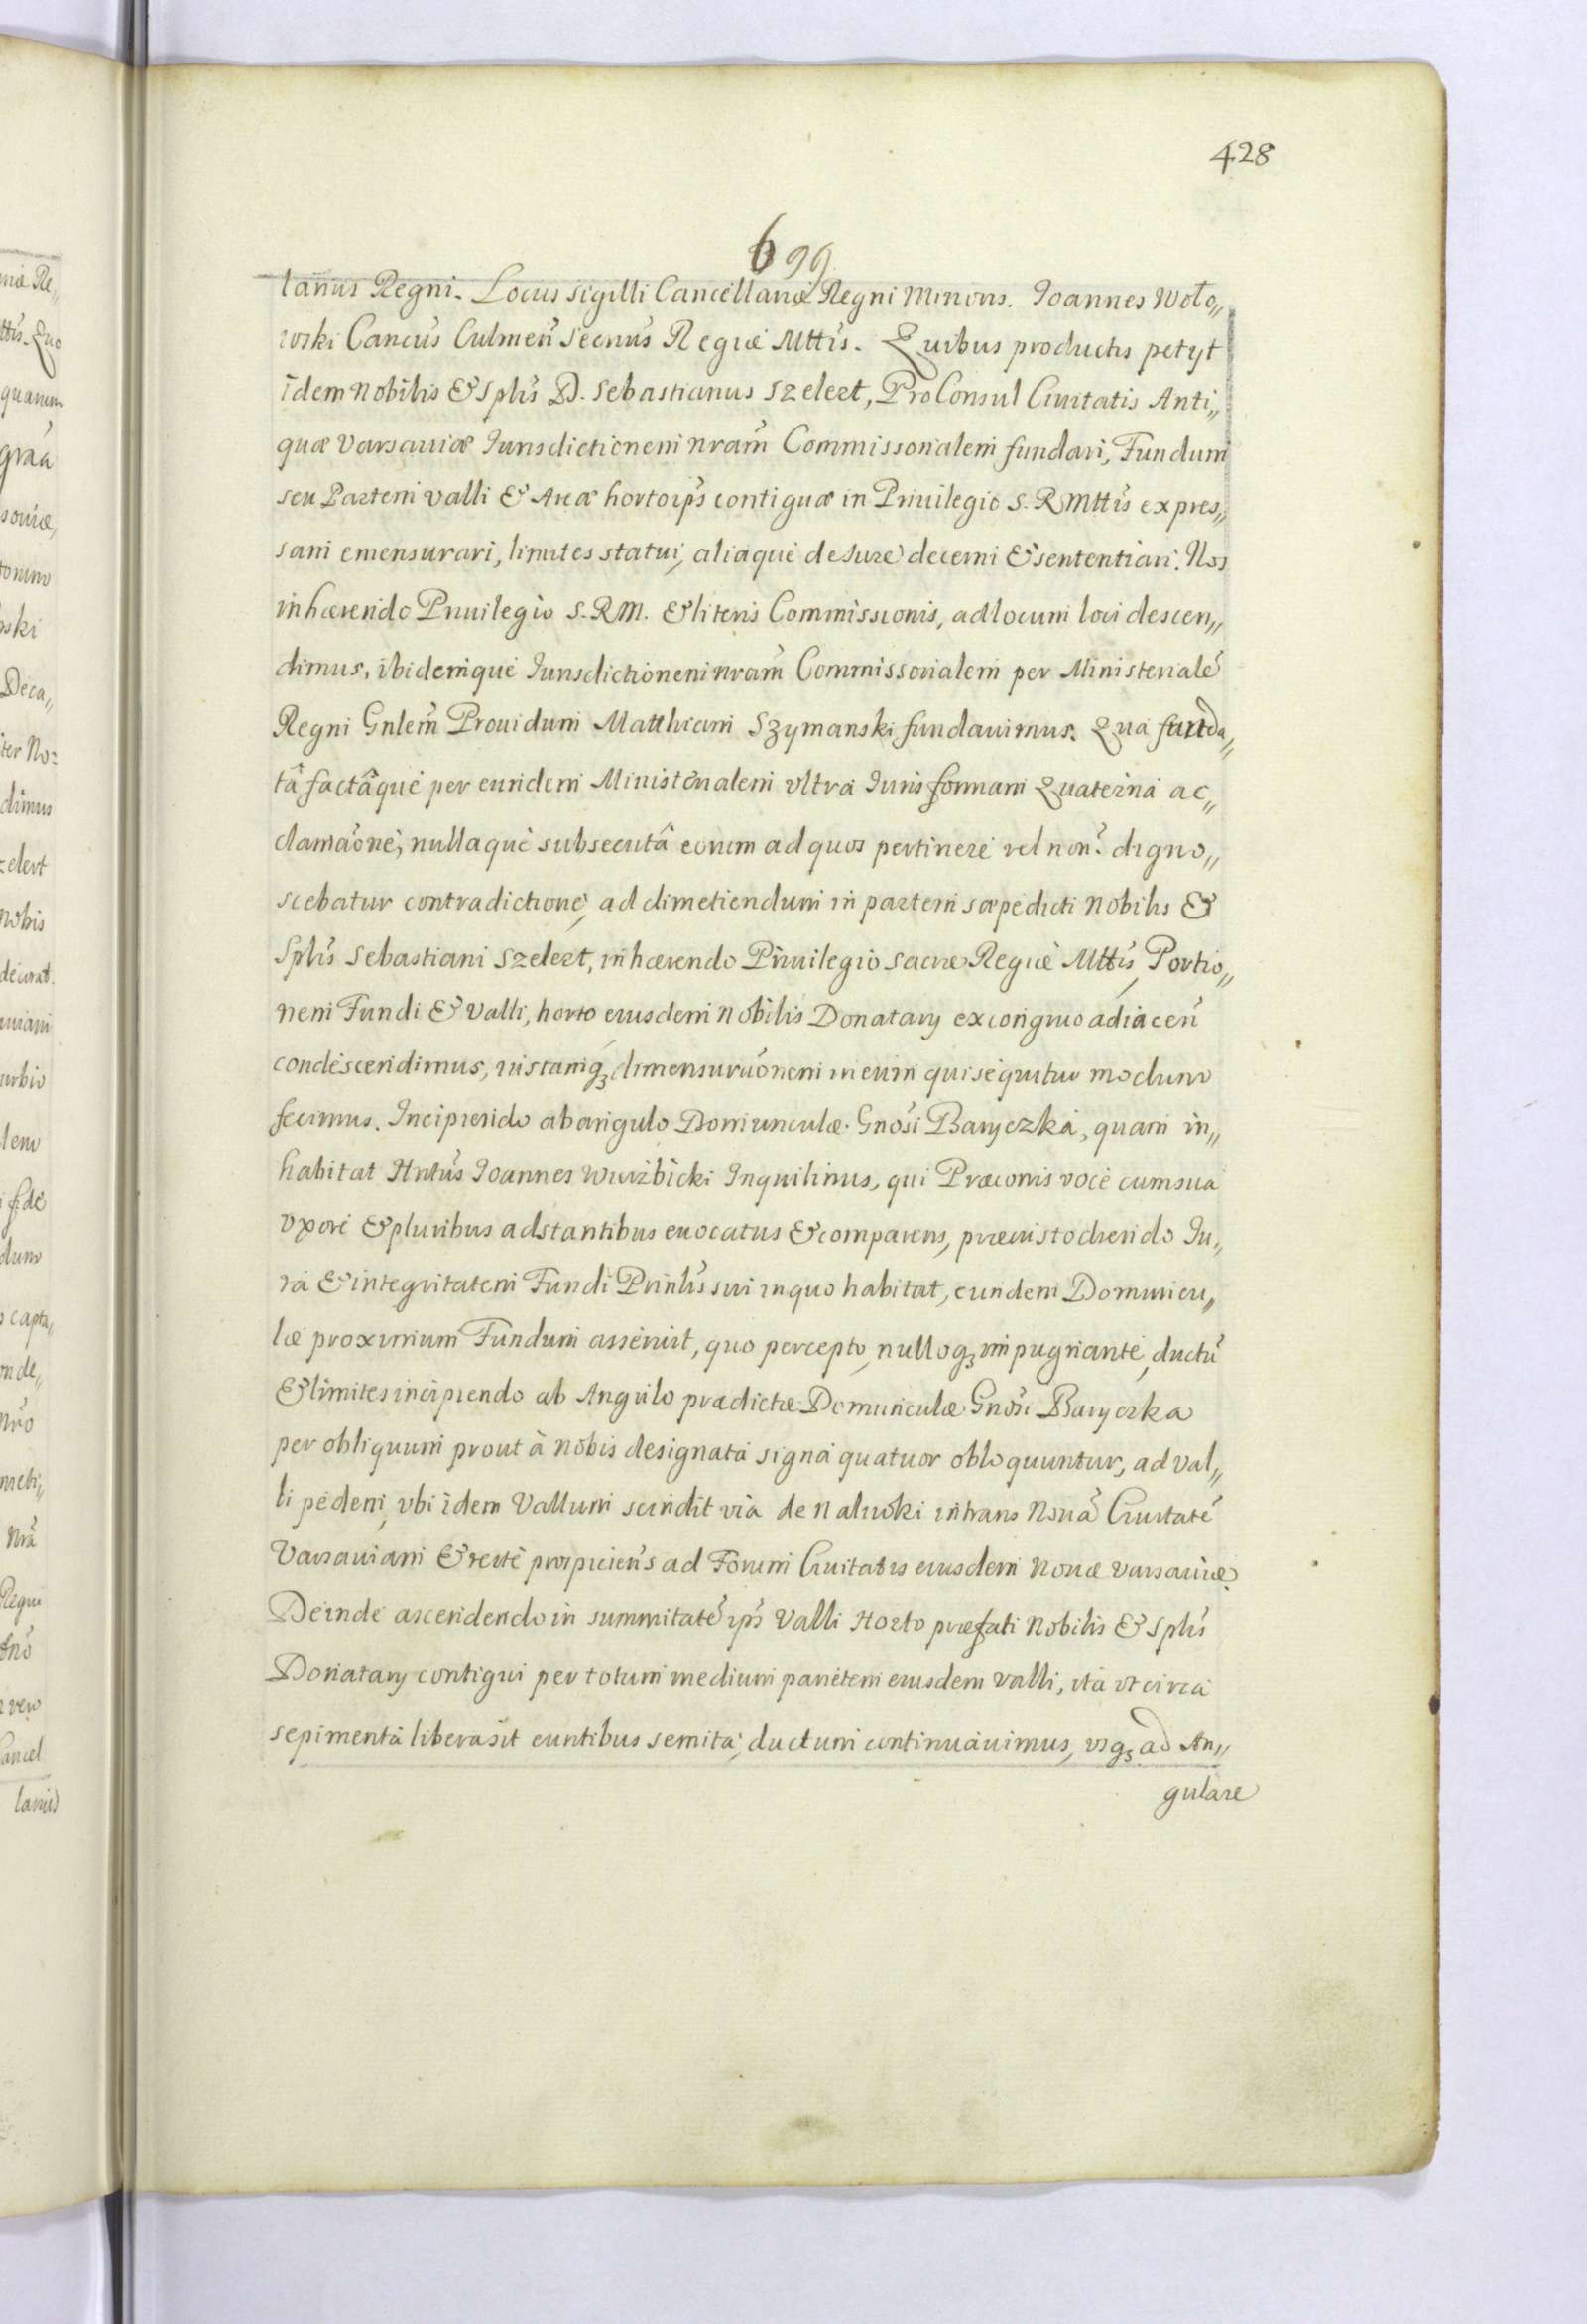 428
699
larius Regni. Locus sigilli Cancellariæ Regni Minoris. Joannes Woło„
wski Cancus̃ Culmeñ Secrius̃ Regiæ Mttis̃. Quibus productis petyt
idem Nobilis & Splis̃ D. Sebastianus Szelert, ProConsul Ciuitatis Anti„
quæ Varsauiæ Iurisdictionem nram̃ Commissorialem fundari, Fundum
seu Partem valli & Areæ horto ips̃ contiguæ in Priuilegio S. R Mttis̃ expres„
sam emensurari, limites statui, aliaque de Iure decerni & sententiari. Nos
inhærendo Priuilegio S. R M. & literis Commissionis, ad locum loci descen„
dimus, ibidemque Iurisdictionem nram̃ Commissorialem per Ministerialẽ
Regni Gnlem̃ Prouidum Matthiam Szymanski fundauimus. Qua funda„
tâ factâque per eundem Ministerialem vltra Iuris formam Quaterna ac„
clamaõne, nullaque subsecutâ eorum ad quos pertinere vel noñ digno„
scebatur contradictione, ad dimetiendum in partem sæpedicti Nobilis &
Splis̃ Sebastiani Szelert, inhærendo Priuilegio Sacræ Regiæ Mttis̃, Portio„
nem Fundi & Valli, horto eiusdem Nobilis Donatarij ex congruo adiaceñ
condescendimus, iustamq₃ dimensuraõnem in eum qui sequitur modum
fecimus. Incipiendo ab angulo Domunculæ Gnosi Baryczka, quam in„
habitat Hntus̃ Joannes Wierzbicki Inquilinus, qui Præconis voce cum sua
vxore & pluribus adstantibus euocatus & comparens, præuistodiendo Iu„
ra & integritatem Fundi Prinlis̃ sui in quo habitat, eundem Domuncu„
læ proximum Fundum asseruit, quo percepto, nulloq₃ impugnante, ductũ
& limites incipiendo ab Angulo prædictæ Domunculæ Gnosi Baryczka
per obliquum prout à nobis designata signa quatuor obloquuntur, ad val„
li pedem, vbi idem Vallum scindit via de Nalewki intrans Nouã Ciuitatẽ
Varsauiam & recte prospiciens ad Forum Ciuitatis eiusdem Nouæ Varsauiæ.
Deinde ascendendo in summitatẽ ips̃ Valli Horto præfati Nobilis & Splis̃
Donatarij contigui per totum medium parietem eiusdem valli, ita vt circa
sepimenta libera sit euntibus semita, ductum continuauimus, vsq₃ ad An„
gulare